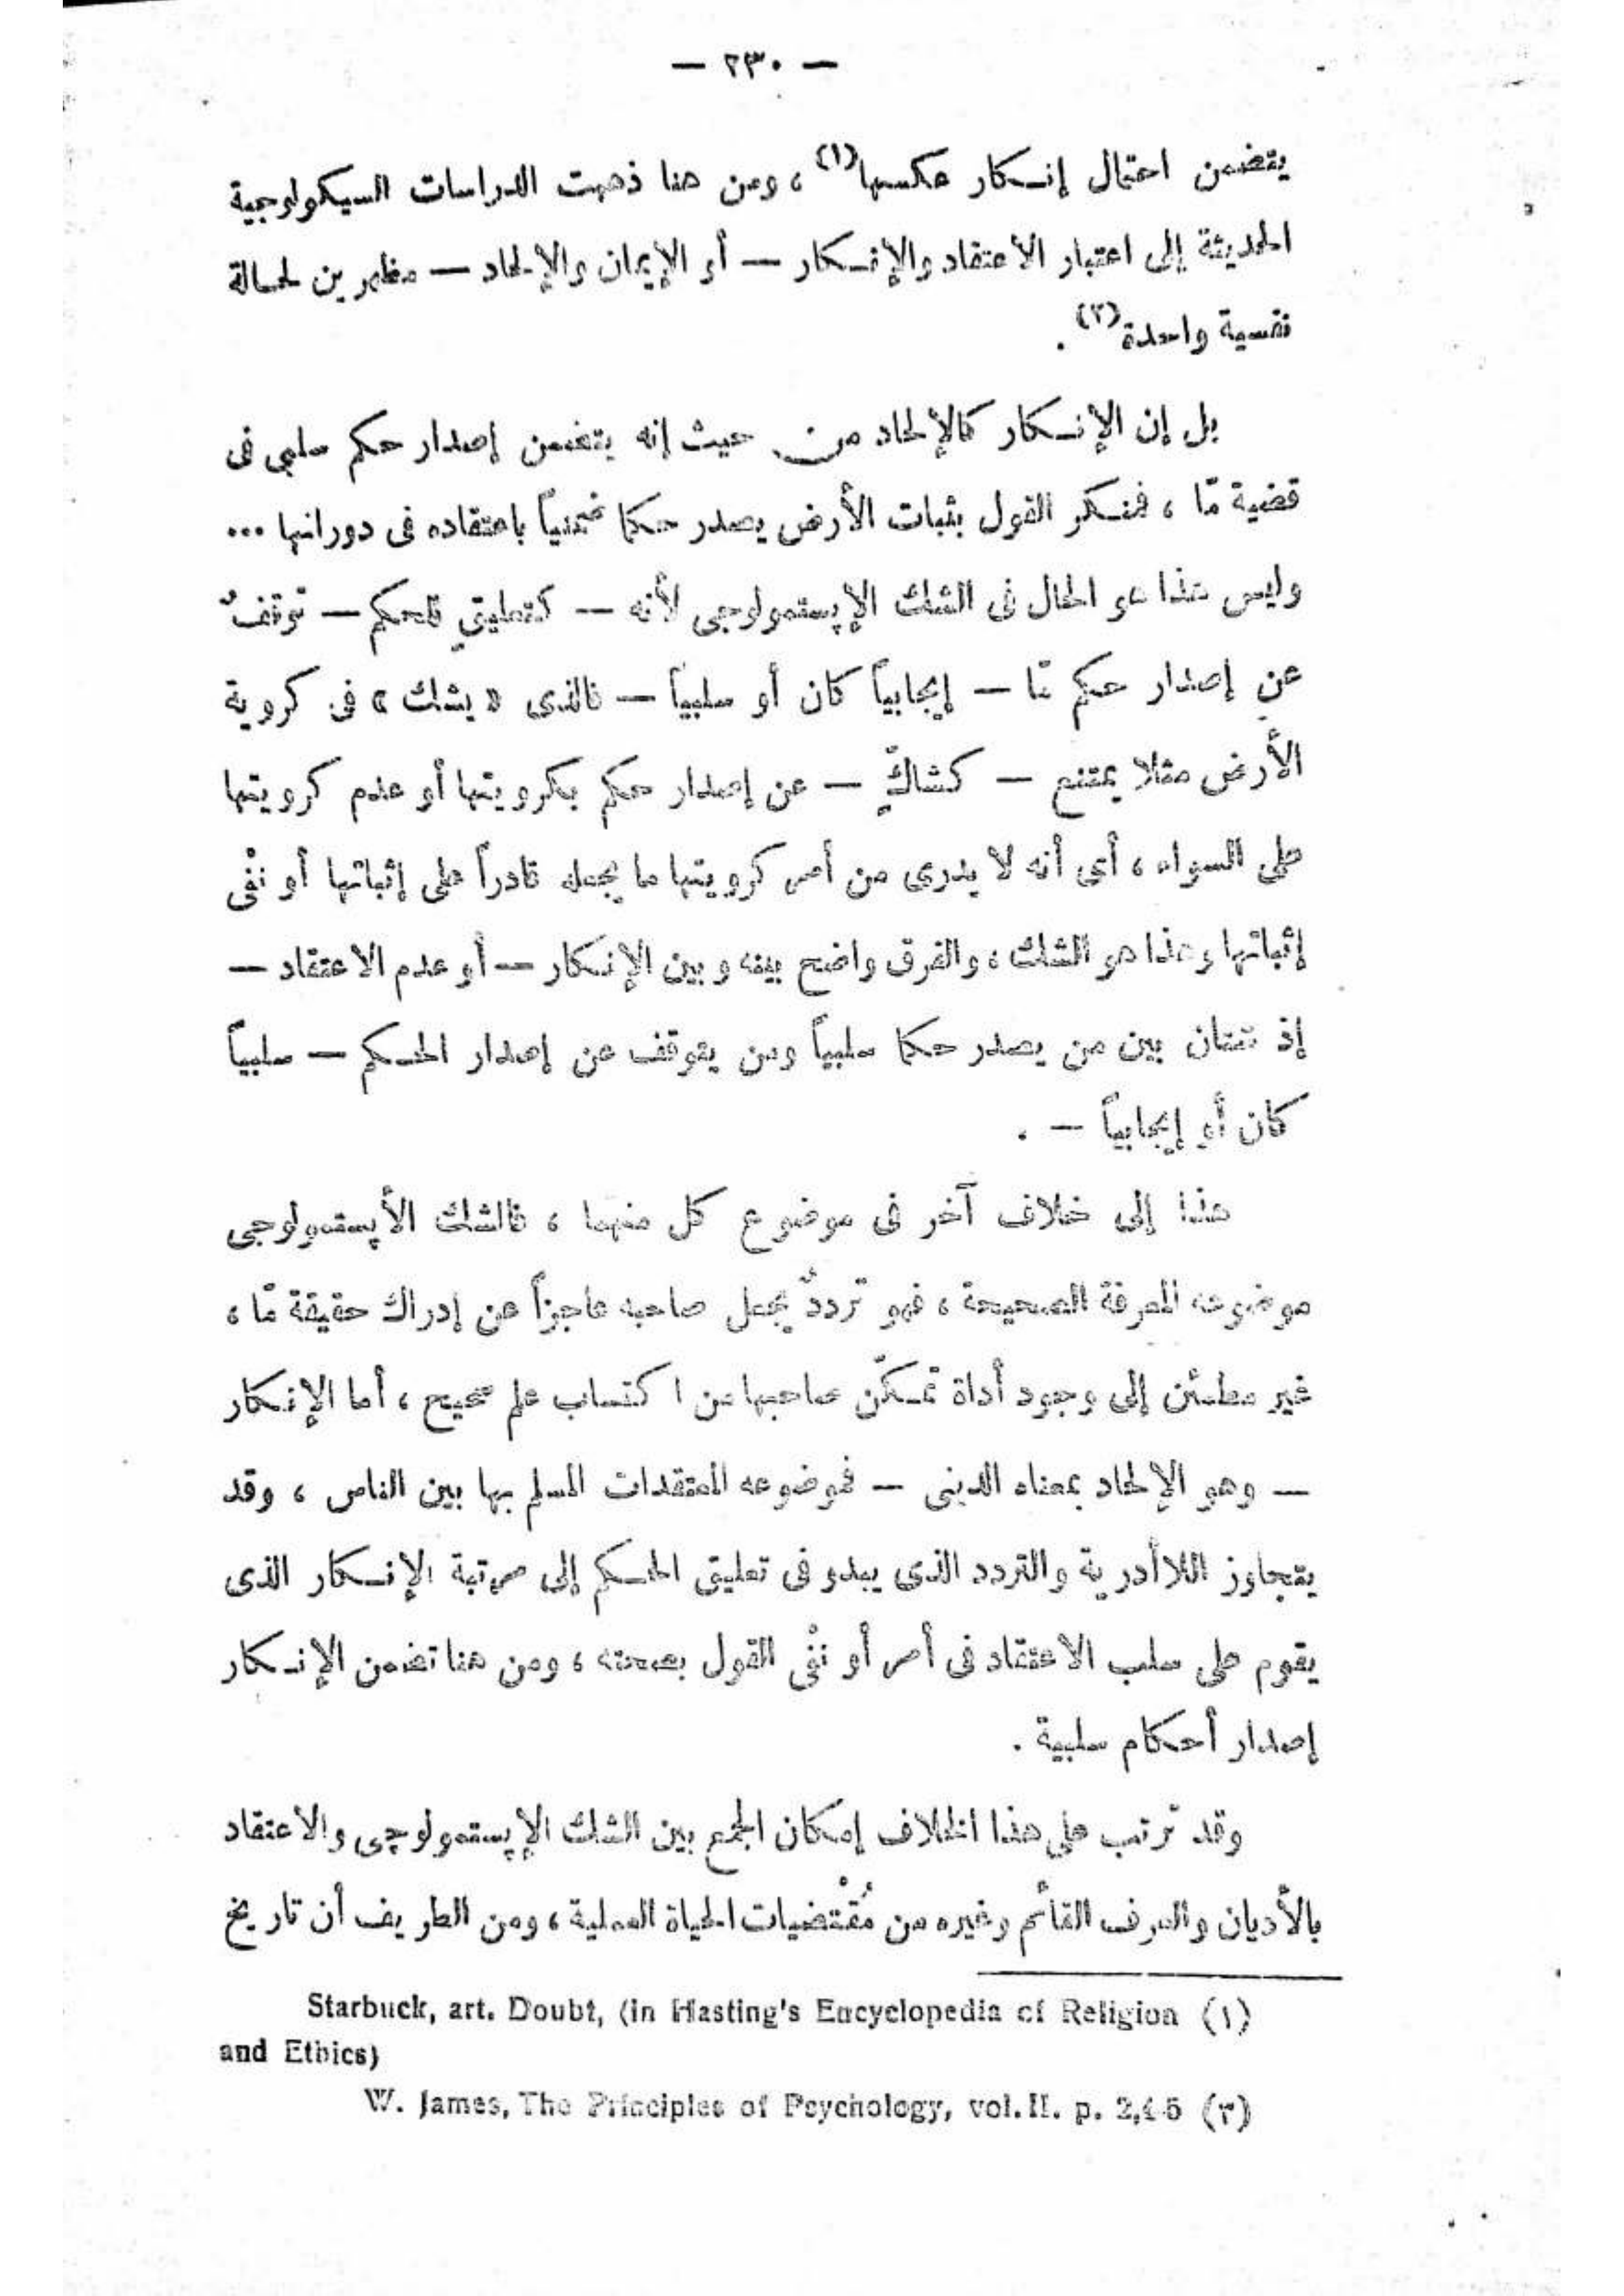 — ٢٣٠ —
يتضمن احتمال إنكار عكسها(١) ، ومن هنا ذهبت الدراسات السيكولوجية
الحديثة إلى اعتبار الاعتقاد والإنكار — أو الإيمان والإلحاد — مظهرين لحالة
نفسية واحدة(٢) .
بل إن الإنكار كالإلحاد من حيث إنه يتضمن إصدار حكم سلبى فى
قضية مّا ، فمنكر القول بثبات الأرض يصدر حكما ضمنياً باعتقاده فى دورانها ...
وليس هذا هو الحال فى الشك الإپستمولوجى لأنه — كتعليقٍ للحكم — توقفٌ
عن إصدار حكم مّا — إيجابياً كان أو سلبياً — فالذى « يشك » فى كروية
الأرض مثلا يمتنع — كشاكٍّ — عن إصدار حكم بكرويتها أو عدم كرويتها
على السواء ، أى أنه لا يدرى من أمر كرويتها ما يجعله قادراً على إثباتها أو نفْى
إثباتها وهذا هو الشك ، والفرق واضح بينه وبين الإنكار — أو عدم الاعتقاد —
إذ شتان بين من يصدر حكما سلبياً ومن يتوقف عن إصدار الحكم — سلبياً
كان أو إيجابياً — .
هذا إلى خلاف آخر فى موضوع كل منهما ، فالشك الأپستمولوجى
موضوعه المعرفة الصحيحة ، فهو ترددٌ يجعل صاحبه عاجزاً عن إدراك حقيقة مّا ،
غير مطمئن إلى وجود أداة تمكّن صاحبها من اكتساب علم صحيح ، أما الإنكار
— وهو الإلحاد بمعناه الدينى — فموضوعه المعتقدات المسلم بها بين الناس ، وقد
يتجاوز اللاأدرية والتردد الذى يبدو فى تعليق الحكم إلى مرتبة الإنكار الذى
يقوم على سلب الاعتقاد فى أمر أو نفْى القول بصحته ، ومن هنا تضمن الإنكار
إصدار أحكام سلبية .
وقد ترتب على هذا الخلاف إمكان الجمع بين الشك الإپستمولوچى والاعتقاد
بالأديان والعرف القائم وغيره من مُقْتضيات الحياة العملية ، ومن الطريف أن تاريخ
(١) Starbuck, art. Doubt, (in Hasting's Encyclopedia of Religion
and Ethics)
(٢) W. James, The Principles of Psychology, vol. II. p.